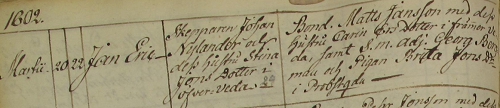 1802.
Martii. 20 22 Jan Eric —
Skepparen Johan
Nylander och
dess hustru Stina
Jons Dotter i
öfver-Veda.
Bond. Matts Jansson med dess
hustru Carin Ersdotter i främer Ve
da, samt S. m. adj. Georg Berg
mau och Pigan Brita Jons Dr
i Probstgda —
Jansson med